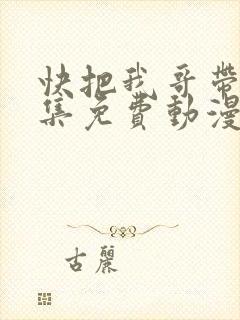 快把我哥帶
集免費動漫
古麗